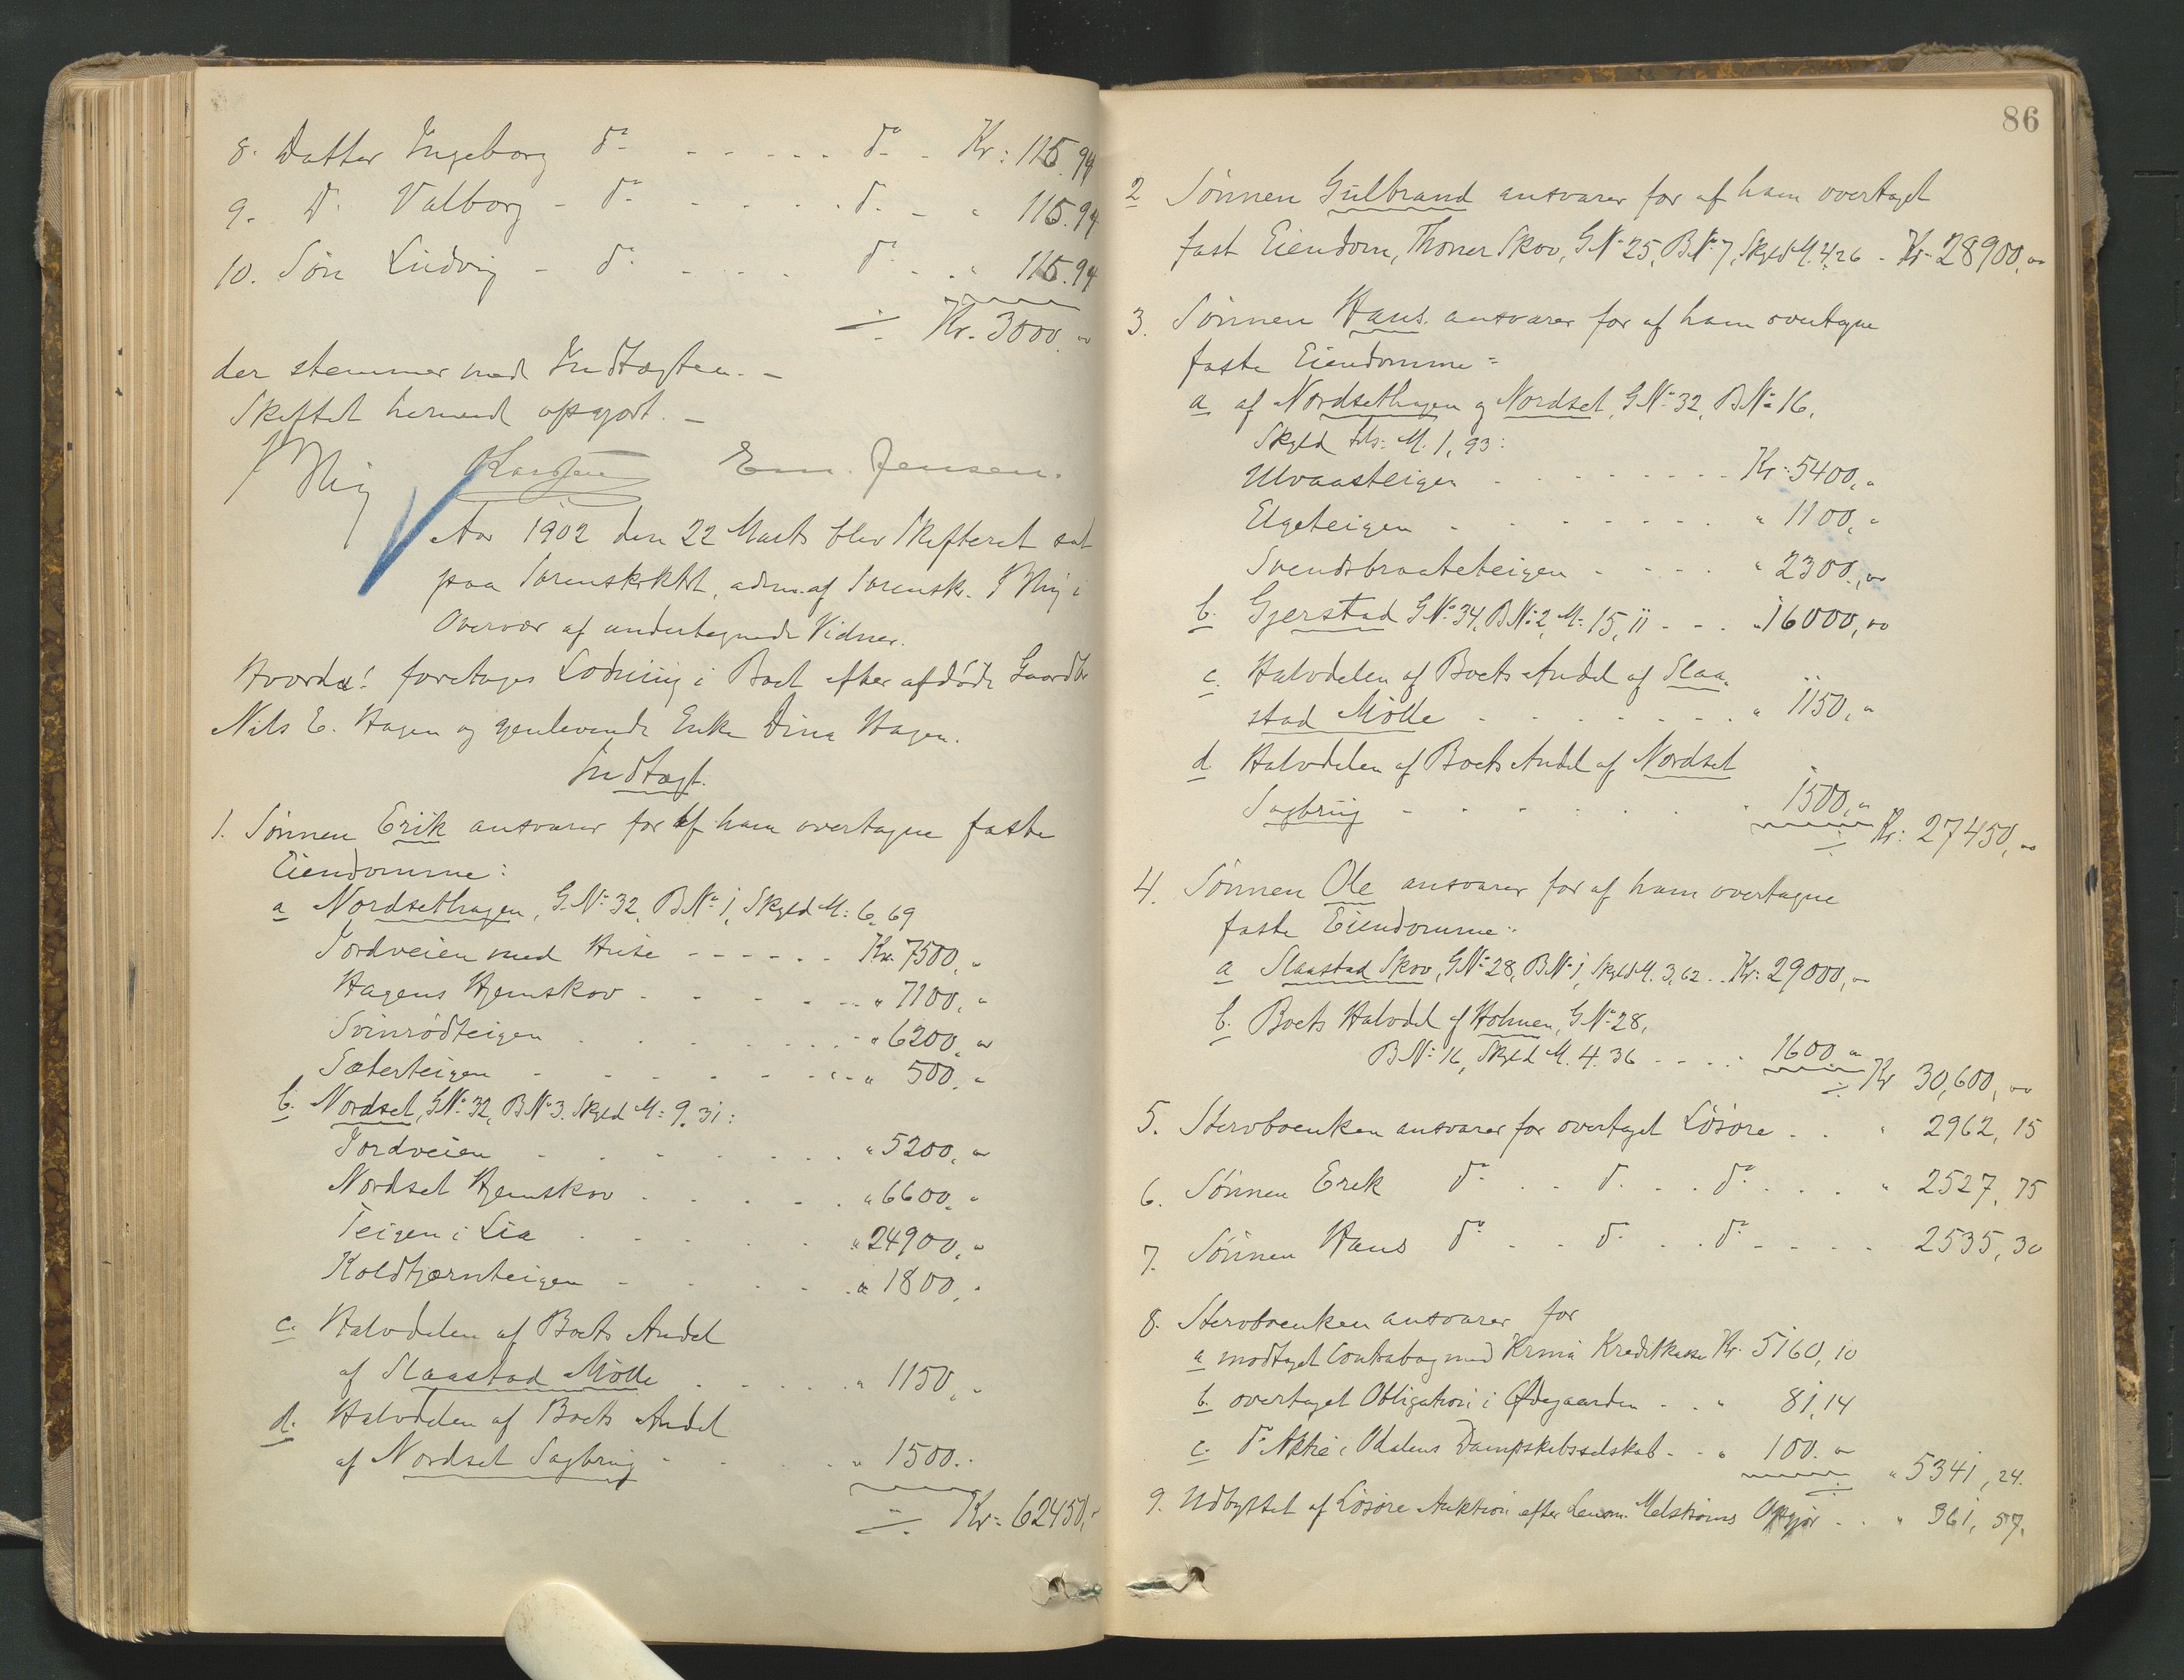 8. Datter Ingeborg do - - - - - do - Kr: 115.94
9. Do Valborg - do - - - - do - " 115.94
10. Søn Ludvig - do - - - - do - " 115.94
÷ Kr. 3000."
der stemmer med Indtægten. -
Skiftet hermed opgjort. -
Em. Jensen.
Aar 1902 den 22 Marts blev Skifteret sat
paa Sorenskrktrt, adm. af Sorensk. i
Overvær af undertegnede Vidner.
Hvorda! foretages Lodning i Boet efter afdøde Gaardbr
Nils E. Hagen og gjenlevende Enke Dina Hagen.
Indtægt.
1. Sønnen Erik ansvarer for af ham overtagne faste
Eiendomme:
a Nordsethagen, G.No 32, BNo 1, Skyld M: 6.69
Jordveien med Huse - - - - - - Kr. 7500,"
Hagens Hjemskov - - - - - " 7100,"
Svinrødteigen - - - - - " 6200,"
Sæterteigen - - - - - " 500,"
b. Nordset, GNo 32, BNo 3. Skyld M: 9.31:
Jordveien - - - - - " 5200,"
Nordset Hjemskov - - - - - " 6600,"
Teigen i Lia - - - - " 24900,"
Koldtjernteigen - - - - " 1800,"
c. Halvdelen af Boets Andel
af Slaastad Mølle - - - - " 1150,"
d. Halvdelen af Boets Andel
af Nordset Sagbrug - - - - " 1500."
÷ Kr: 62450,"
86
2 Sønnen Gulbrand ansvarer for af ham overtaget
fast Eiendom, Thoner Skov, GNo 25, BNo 7, Skyld M. 4,26 - Kr. 28900,"
3. Sønnen Hans ansvarer for af ham overtagne
faste Eiendomme:
a af Nordsethagen og Nordset, GNo 32, BNo 16,
Skyld tils: M. 1,93:
Ulvaasteigen - - - - - - Kr: 5400,"
Elgeteigen - - - - - - " 1100,"
Svendsbraateteigen - - - - " 2300,"
b. Gjerstad GNo 34, BNo 2, M: 15,11 - - - " 16000,"
c. Halvdelen af Boets Andel af Slaa-
stad Mølle - - - - - - " 1150,"
d Halvdelen af Boets Andel af Nordset
Sagbrug - - - - - - " 1500,"
÷ Kr: 27450,"
4. Sønnen Ole ansvarer for af ham overtagne
faste Eiendomme:
a Slaastad Skov, GNo 28, BNo 1, Skyld M. 3,62 - - Kr: 29000,"
b. Boets Halvdel af Holmen, GNo 28,
BNo 16, Skyld M. 4.36 - - - - 1600 "
÷ Kr 30,600,"
5. Stervboenken ansvarer for overtaget Løsøre - - " 2962,15
6. Sønnen Erik do - - do - - do - - - " 2527,75
7. Sønnen Hans do - - do - - do - - - - 2535,30
8. Stervboenken ansvarer for
a modtaget Contrabog med Krnia Kreditkasse Kr. 5160,10
b. overtaget Obligation i Ødegaarden - - " 81,14
c. do Aktie i Odalens Dampskibsselskab - - " 100."
÷ " 5341,24.
9. Udbyttet af Løsøre Auktion efter Lensm. Melstrøms Opgjør - - " 361,57.